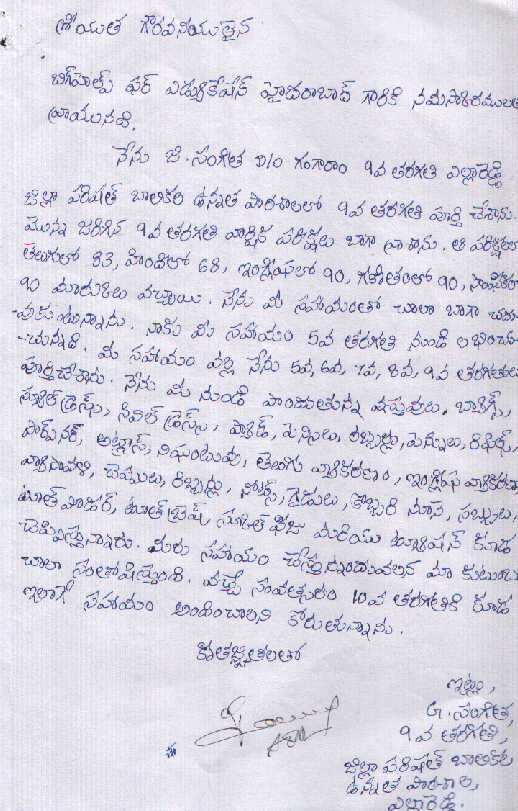 శ్రీయుత గౌరవనీయులైన
బిగ్‌హెల్ప్ ఫర్ ఎడ్యుకేషన్ హైదరాబాద్ గారికి నమస్కారములతో
వ్రాయునది.
నేను జి. సంగీత D/O గంగారాం 9వ తరగతి ఎల్లారెడ్డి
జిల్లా పరిషత్ బాలికల ఉన్నత పాఠశాలలో 9వ తరగతి పూర్తి చేశాను.
మొన్న జరిగిన 9వ తరగతి వార్షిక పరీక్షలు బాగా వ్రాశాను. ఆ పరీక్షలలో
తెలుగులో 83, హిందీలో 68, ఇంగ్లీషులో 90, గణితంలో 90,
90 మార్కులు వచ్చాయి. నేను మీ సహాయంతో చాలా బాగా చదు
-వుకుంటున్నాను. నాకు మీ సహాయం 5వ తరగతి నుండి లభించు
-చున్నది. మీ సహాయం వల్ల నేను 5వ, 6వ, 7వ, 8వ, 9వ తరగతులు
పూర్తిచేశాను. నేను మీ నుండి పొందుతున్న వస్తువులు, బుక్స్,
స్కూల్ డ్రెస్సు, సివిల్ డ్రెస్సు, ప్యాడ్, పెన్సిలు, రబ్బర్లు, పెన్నులు, రీఫిల్స్,
పౌడర్, అట్లాస్, నిఘంటువు, తెలుగు వ్యాకరణం, ఇంగ్లీషు వ్యాకరణం
చెప్పులు, రిబ్బన్లు, కొబ్బరి నూనె, సబ్బులు,
టూత్ పౌడర్, టూత్ బ్రష్, స్కూల్ ఫీజు మరియు ట్యూషన్ కూడ
చెప్పిస్తున్నారు. మీరు సహాయం చేస్తున్నందువలన మా కుటుంబం
చాలా సంతోషిస్తుంది. వచ్చే సంవత్సరం 10వ తరగతికి కూడ
ఇలాగే సహాయం అందించాలని కోరుతున్నాను.
కృతజ్ఞతలతో
ఇట్లు,
G. సంగీత,
9వ తరగతి,
జిల్లా పరిషత్ బాలికల
ఉన్నత పాఠశాల,
ఎల్లారెడ్డి